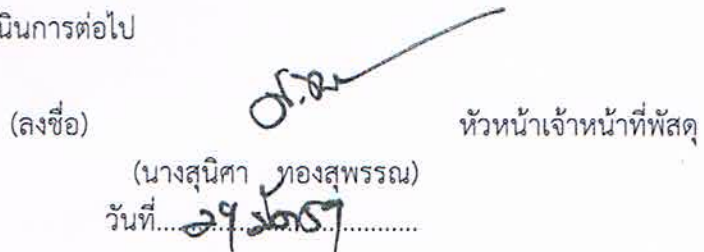 นินการต่อไป
(ลงชื่อ) หัวหน้าเจ้าหน้าที่พัสดุ
(นางสุนิศา ทองสุพรรณ)
วันที่